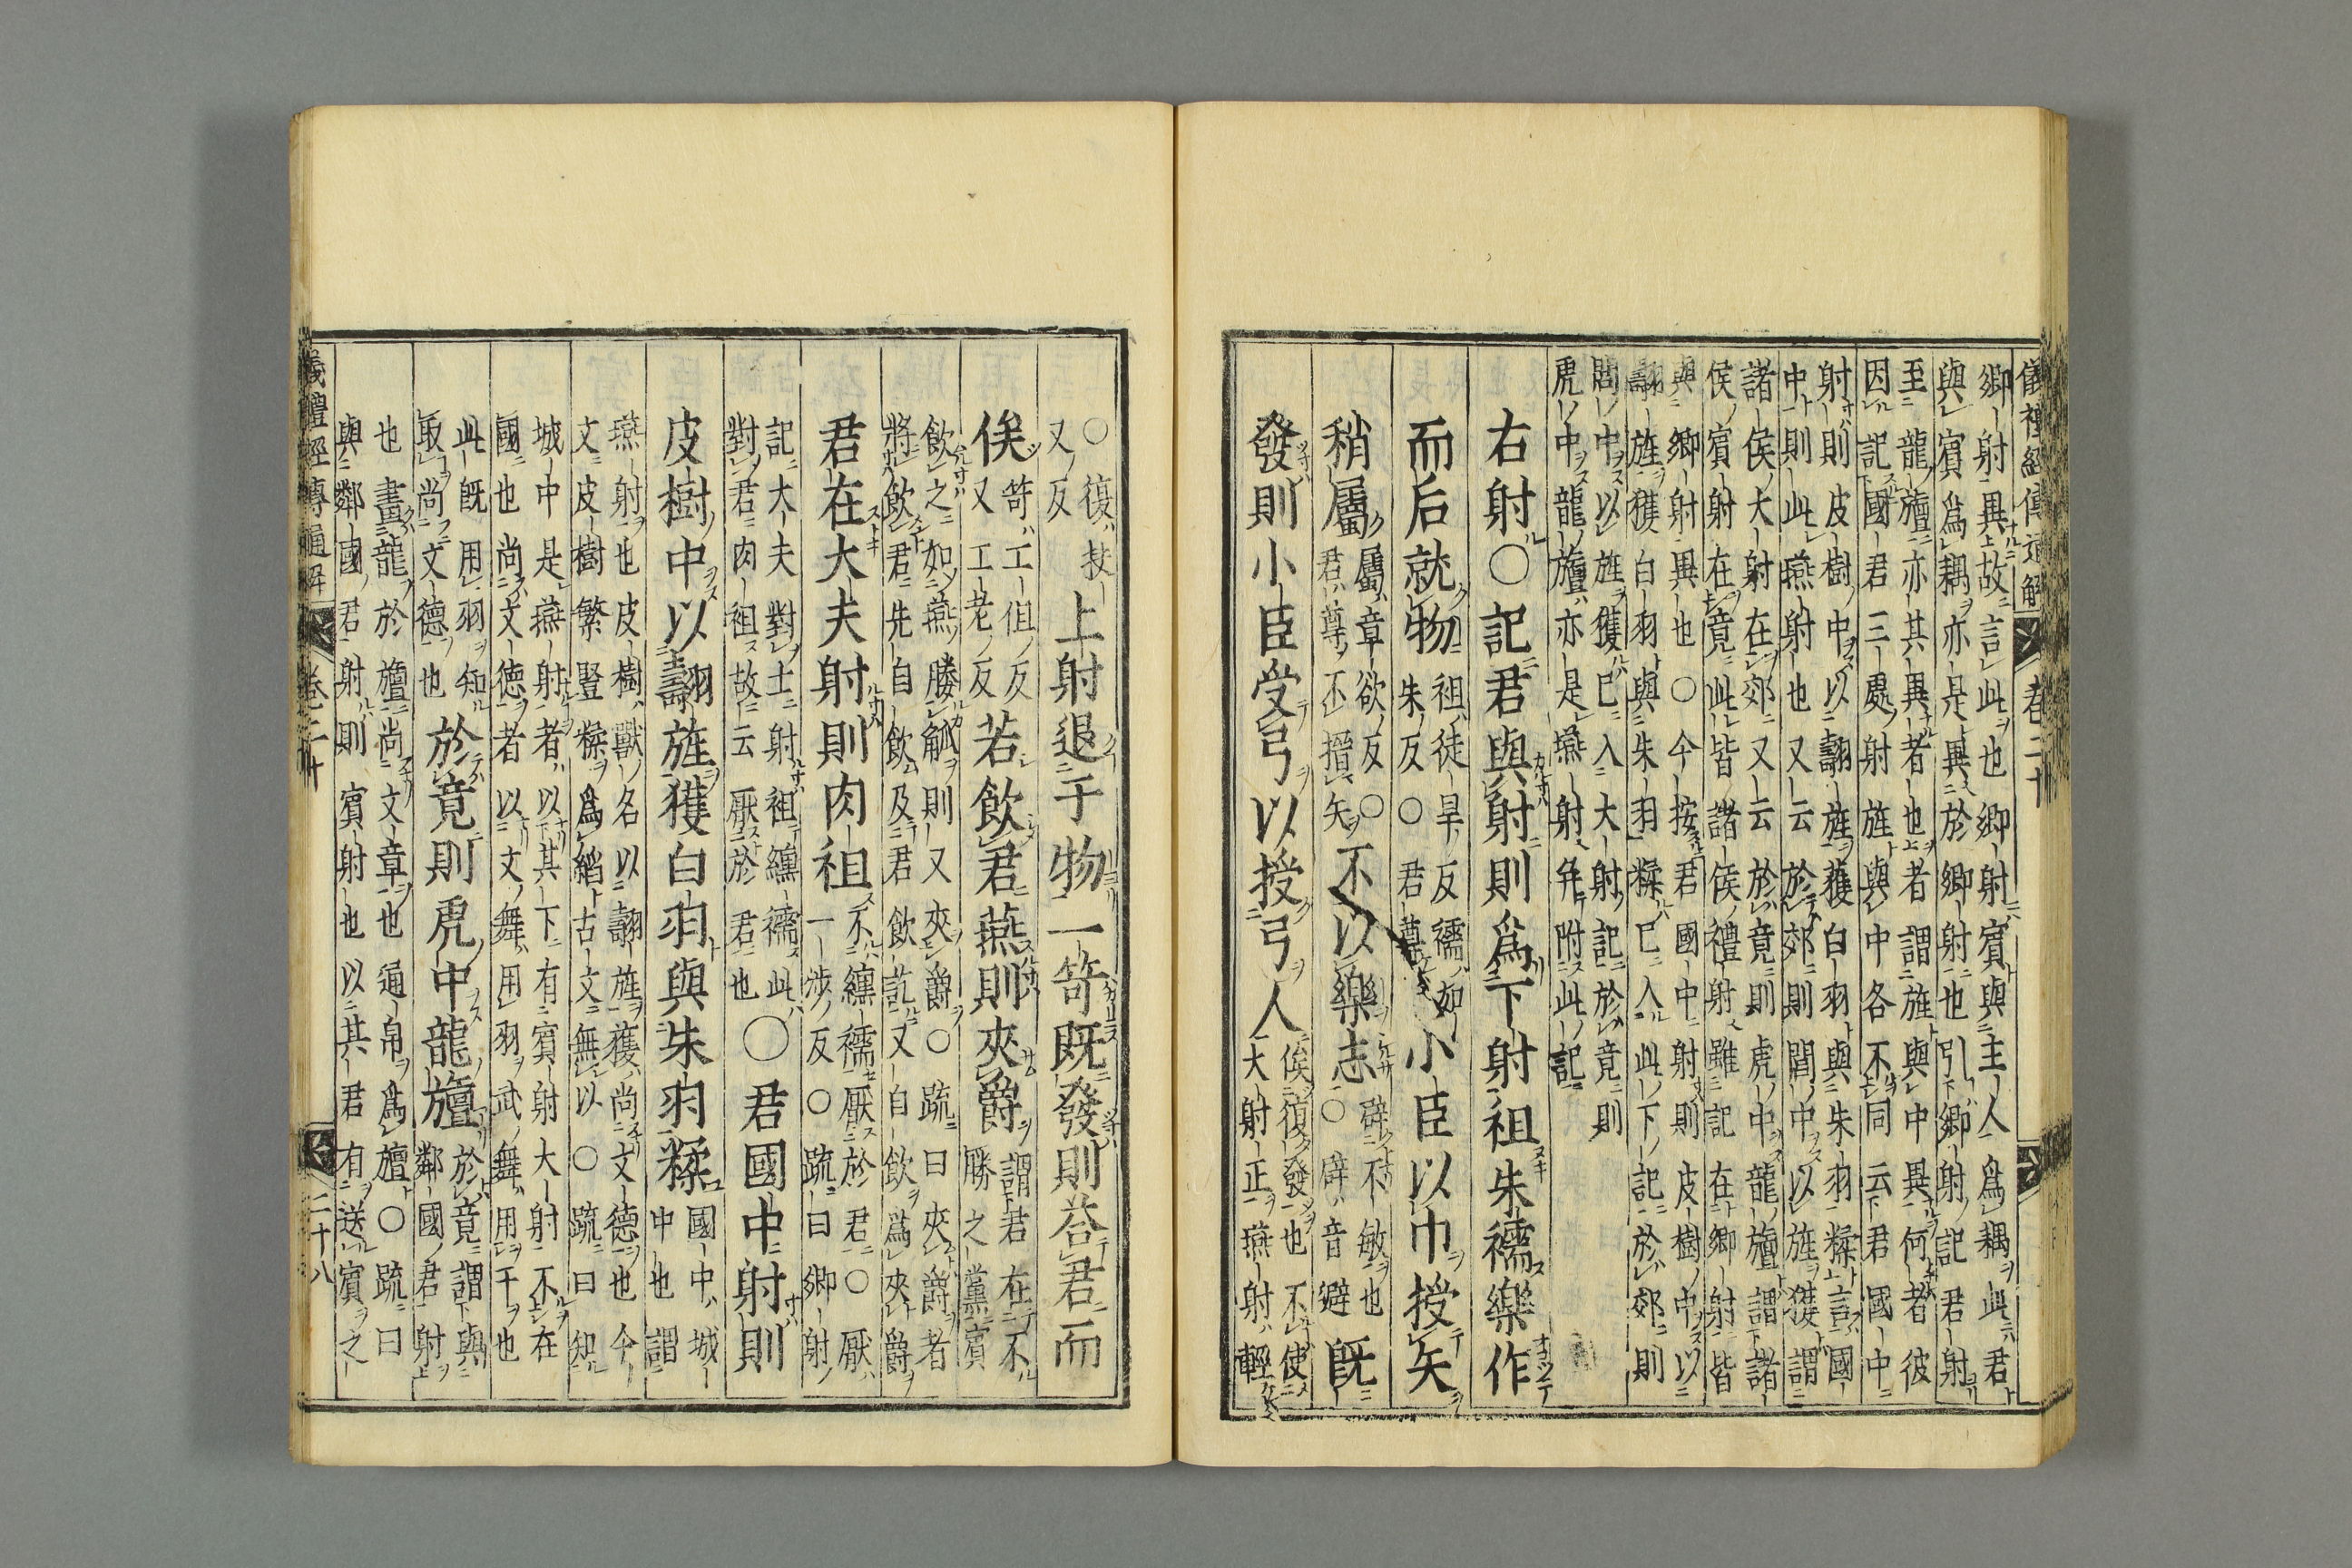 儀禮經傳通解　卷二十
卿射異故言此也卿射賓與主人爲耦此君
與賓爲耦亦是異於卿射也引卿射記君射
至龍旜亦其異者也者謂旌與中異何者彼
因記國君三處射旌與中各不同云君國中
射則皮樹中以翿旌獲白羽與朱羽糅言國
中則此燕射也又云於郊則閭中以旌獲謂
諸侯大射在郊又云於竟則虎中龍旜謂諸
侯賓射在竟此皆諸侯禮射雖記在卿射皆
與卿射異也〇今按君國中射則皮樹中以
翿旌獲白羽與朱羽糅已入此下記於郊則
閭中以旌獲已入大射記於竟則
虎中龍旜亦是燕射弁附此記
右射〇記君與射則爲下射袒朱襦樂作
而后就物袒徒旱反襦如
朱反〇君尊小臣以巾授矢
稍屬屬章欲反〇
君尊不搢矢不以樂志辟不敏也
〇辟音避既
發則小臣受弓以授弓人俟復發也不使
大射正燕射輕
〇復扶
又反上射退于物一笴既發則荅君而
俟笴工但反
又工老反若飲君燕則夾爵謂君在不
勝之黨賓
飲之如燕媵觚則又夾爵〇疏曰夾爵者
將飲君先自飲及君飲訖又自飲爲夾爵
君在大夫射則肉袒不纁襦厭於君〇厭
一涉反〇疏曰卿射
記大夫對士射袒纁襦此
對君肉袒故云厭於君也〇君國中射則
皮樹中以翿旌獲白羽與朱羽糅國中城
中也謂
燕射也皮樹獸名以翿旌獲尚文德也今
文皮樹繁豎糅爲縚古文無以〇疏曰知
城中是燕射者以其下有賓射大射不在
國也尚文德者以文舞用羽武舞用干也
此既用羽知
取尚文德也於竟則虎中龍旜於竟謂與
鄰國君射
也畫龍於旜尚文章也通帛爲旜〇疏曰
與鄰國君射則賓射也以其君有送賓之
儀禮經傳通解　卷二十　二十八